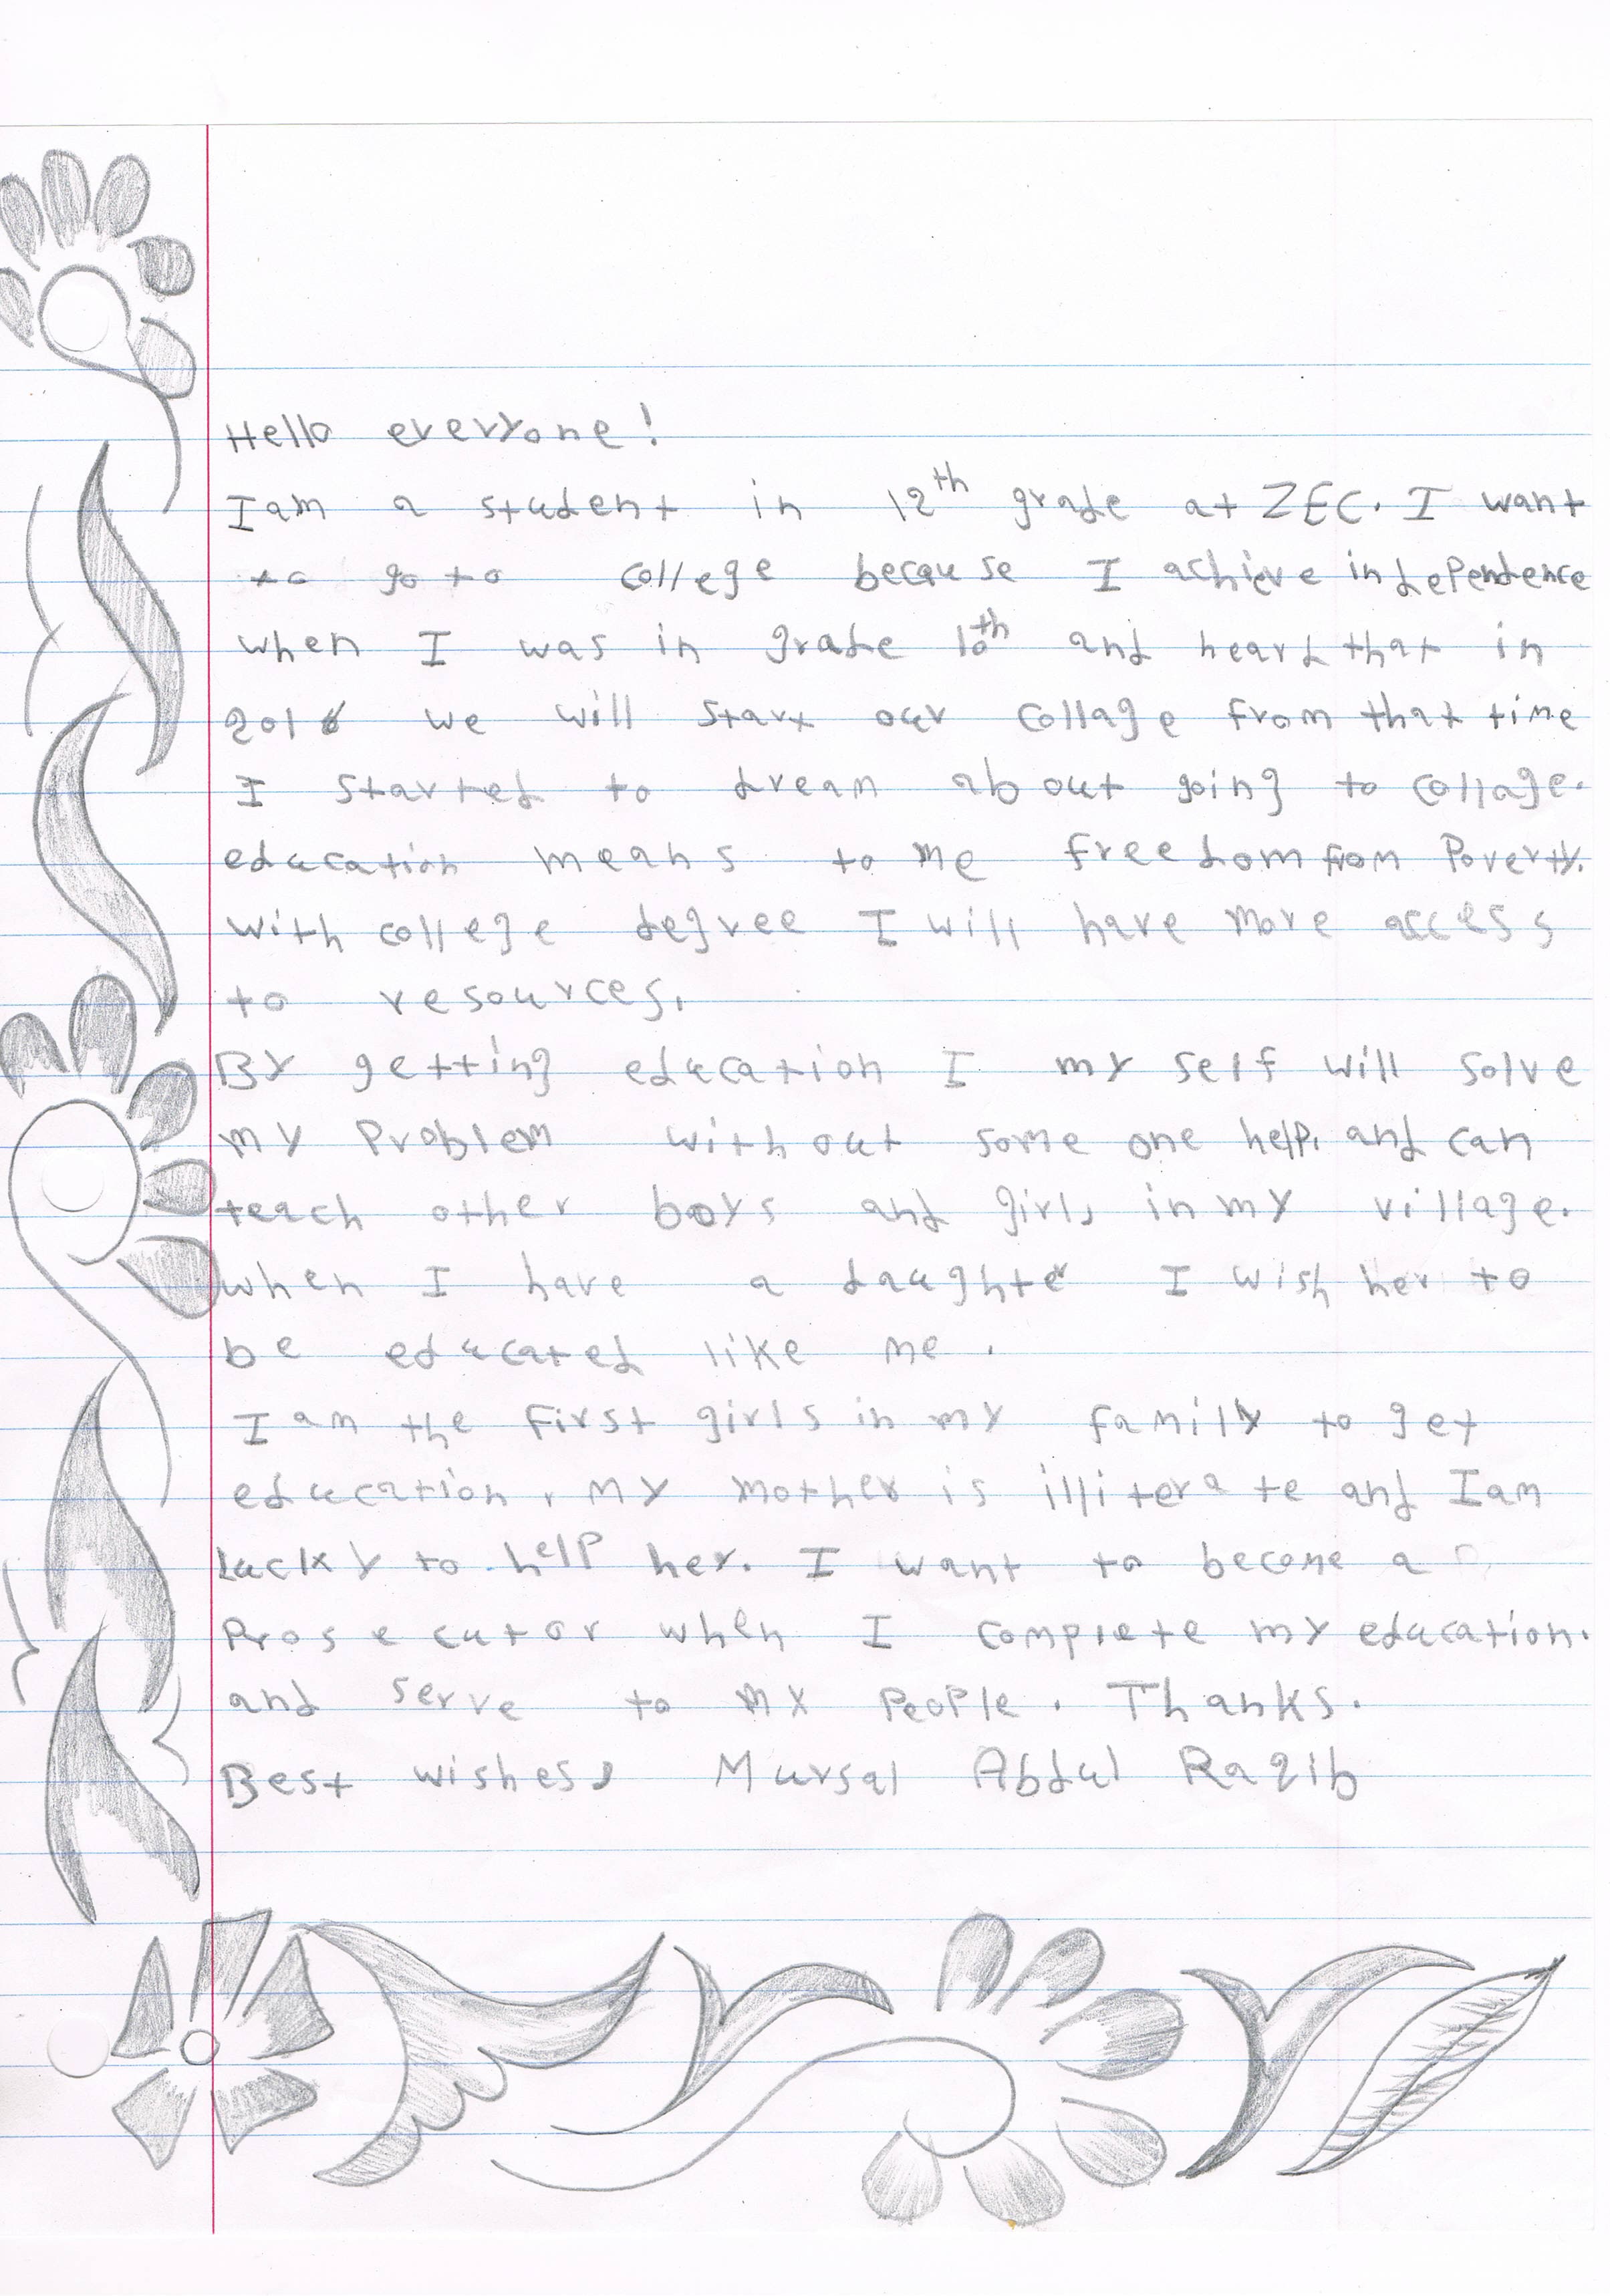 Hello everyone!
I am a student in 12th grade at ZEC. I want
to go to college because I achieve independence
when I was in grade 10th and heard that in
2016 we will start our collage from that time
I started to dream about going to collage.
education means to me freedom from Poverty.
with college degree I will have more access
to resources.
By getting education I my self will solve
my Problem without some one help. and can
teach other boys and girls in my village.
when I have a daughter I wish her to
be educated like me.
I am the first girls in my family to get
education. my mother is illiterate and I am
lucky to help her. I want to become a
Prosecutor when I complete my education.
and serve to my People. Thanks.
Best wishes, Mursal Abdul Raqib